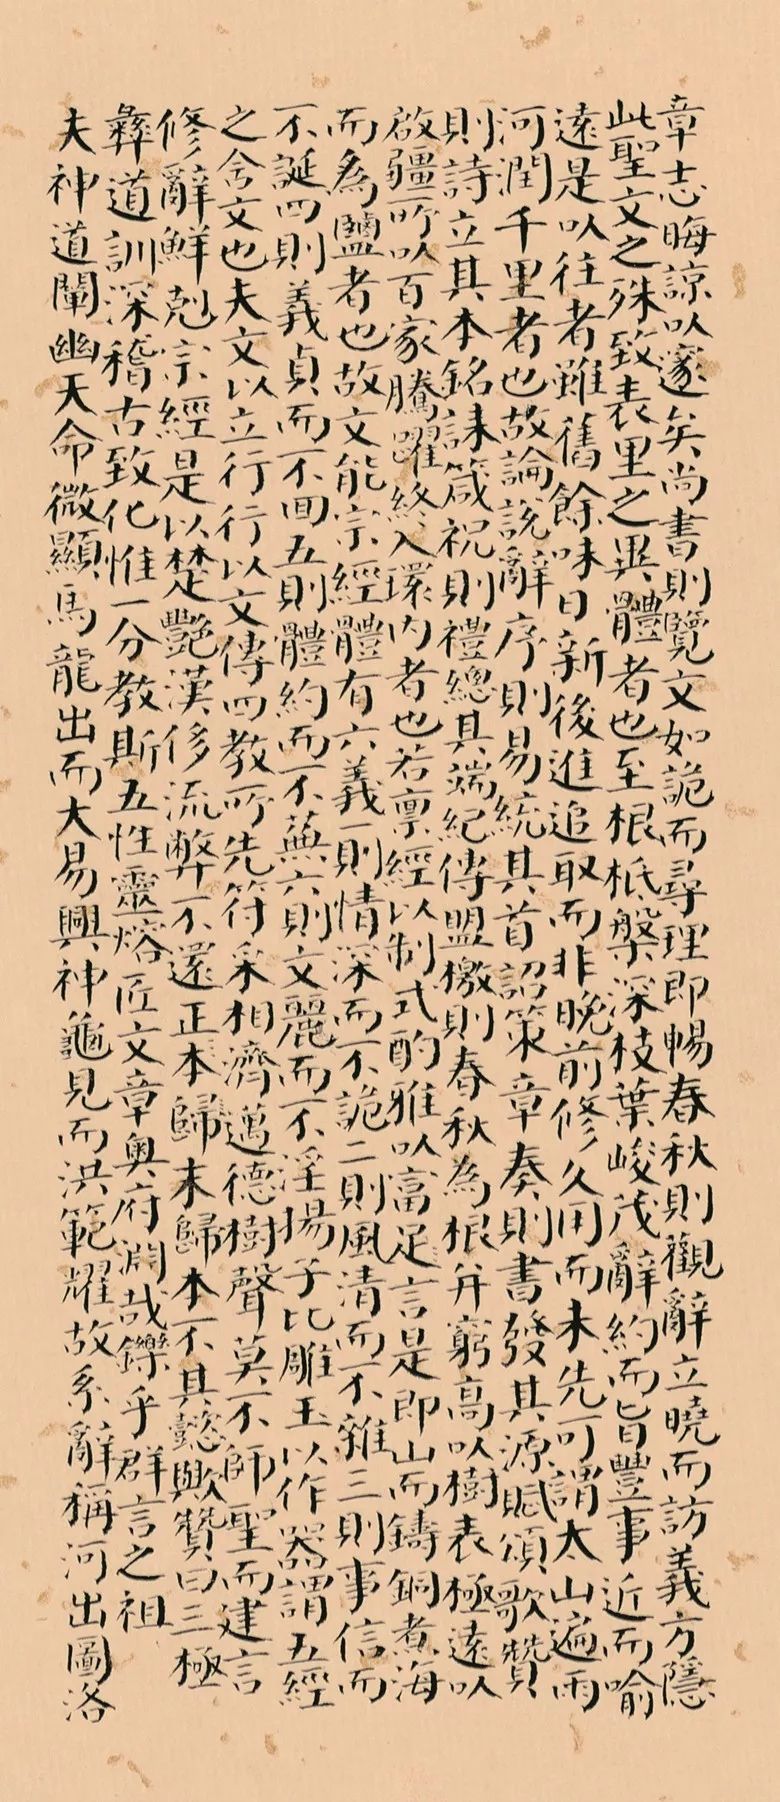 章志晦諒以邃矣尚書則覽文如詭而尋理即暢春秋則觀辭立曉而訪義方隱
此聖文之殊致表里之異體者也至根柢槃深枝葉峻茂辭約而旨豐事近而喻
遠是以往者雖舊餘味日新後進追取而非晚前修久用而未先可謂太山遍雨
河潤千里者也故論說辭序則易統其首詔策章奏則書發其源賦頌歌贊
則詩立其本銘誄箴祝則禮總其端紀傳盟檄則春秋為根并窮高以樹表極遠以
啟疆所以百家騰躍終入環內者也若禀經以制式酌雅以富足言是即山而鑄銅煮海
而為鹽者也故文能宗經體有六義一則情深而不詭二則風清而不雜三則事信而
不誕四則義貞而不回五則體約而不蕪六則文麗而不淫揚子比雕玉以作器謂五經
之含文也夫文以立行行以文傳四教所先符采相濟邁德樹聲莫不師聖而建言
修辭鮮克宗經是以楚艷漢侈流弊不還正本歸末歸本不其懿歟贊曰三極
彝道訓深稽古致化惟一分教斯五性靈熔匠文章奧府淵哉鑠乎群言之祖
夫神道闡幽天命微顯馬龍出而大易興神龜見而洪範耀故系辭稱河出圖洛